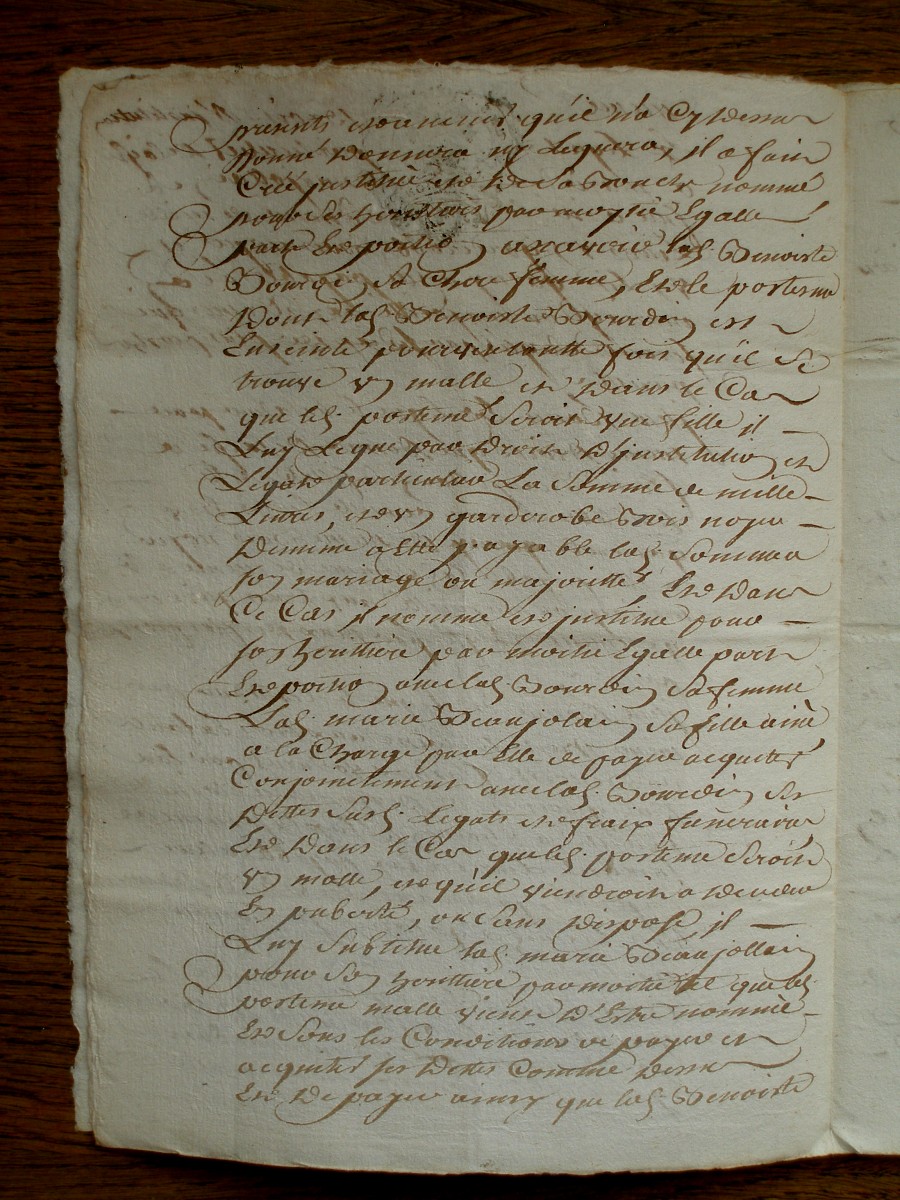 presents et avenir qu'il n'a cy dessus
donné donnera ny leguera, il a fait
Créé justitué et de sa Bouche nommé
pour ses heritiers par moytié Egalle
part Et portio asavoir lad. Benoiste
Bourdin sa chere femme, Et le posteme
dont lad. Benoiste Bourdin est
Enceinte pourveu toutte fois qu'il se
trouve un malle et dans le Cas
que led. posteme seroit une fille il
Luy legue par droit d'justitution et
Legat particulier La somme de mille
Livres, et un garderobe Bois noyer
payable lad. somme a
son mariage ou majoritté, Et dans
Ce Cas il nomme et justitue pour
sa heritiere par moitié Egalle part
Et portion avec lad. Bourdin sa femme
Lad. marie Beaujolain sa fille ainé
a la Charge par Elle de payer acquiter
Conjoinctement avec lad. Bourdin ses
dettes sesd. Legats et fraix funeraires
Et dans le Cas que led. posteme seroit
un malle, et qu'il viendroit a deceder
En puberté, ou sans disposer, il
Luy substitue lad. marie Beaujollain
pour son heritiere par moitié tel que led.
posteme malle vient d'Estre nommé
Et sous les Conditions de payer et
acquiter ses dettes Comme dessus
Et de payer ainsy que lad. Benoiste